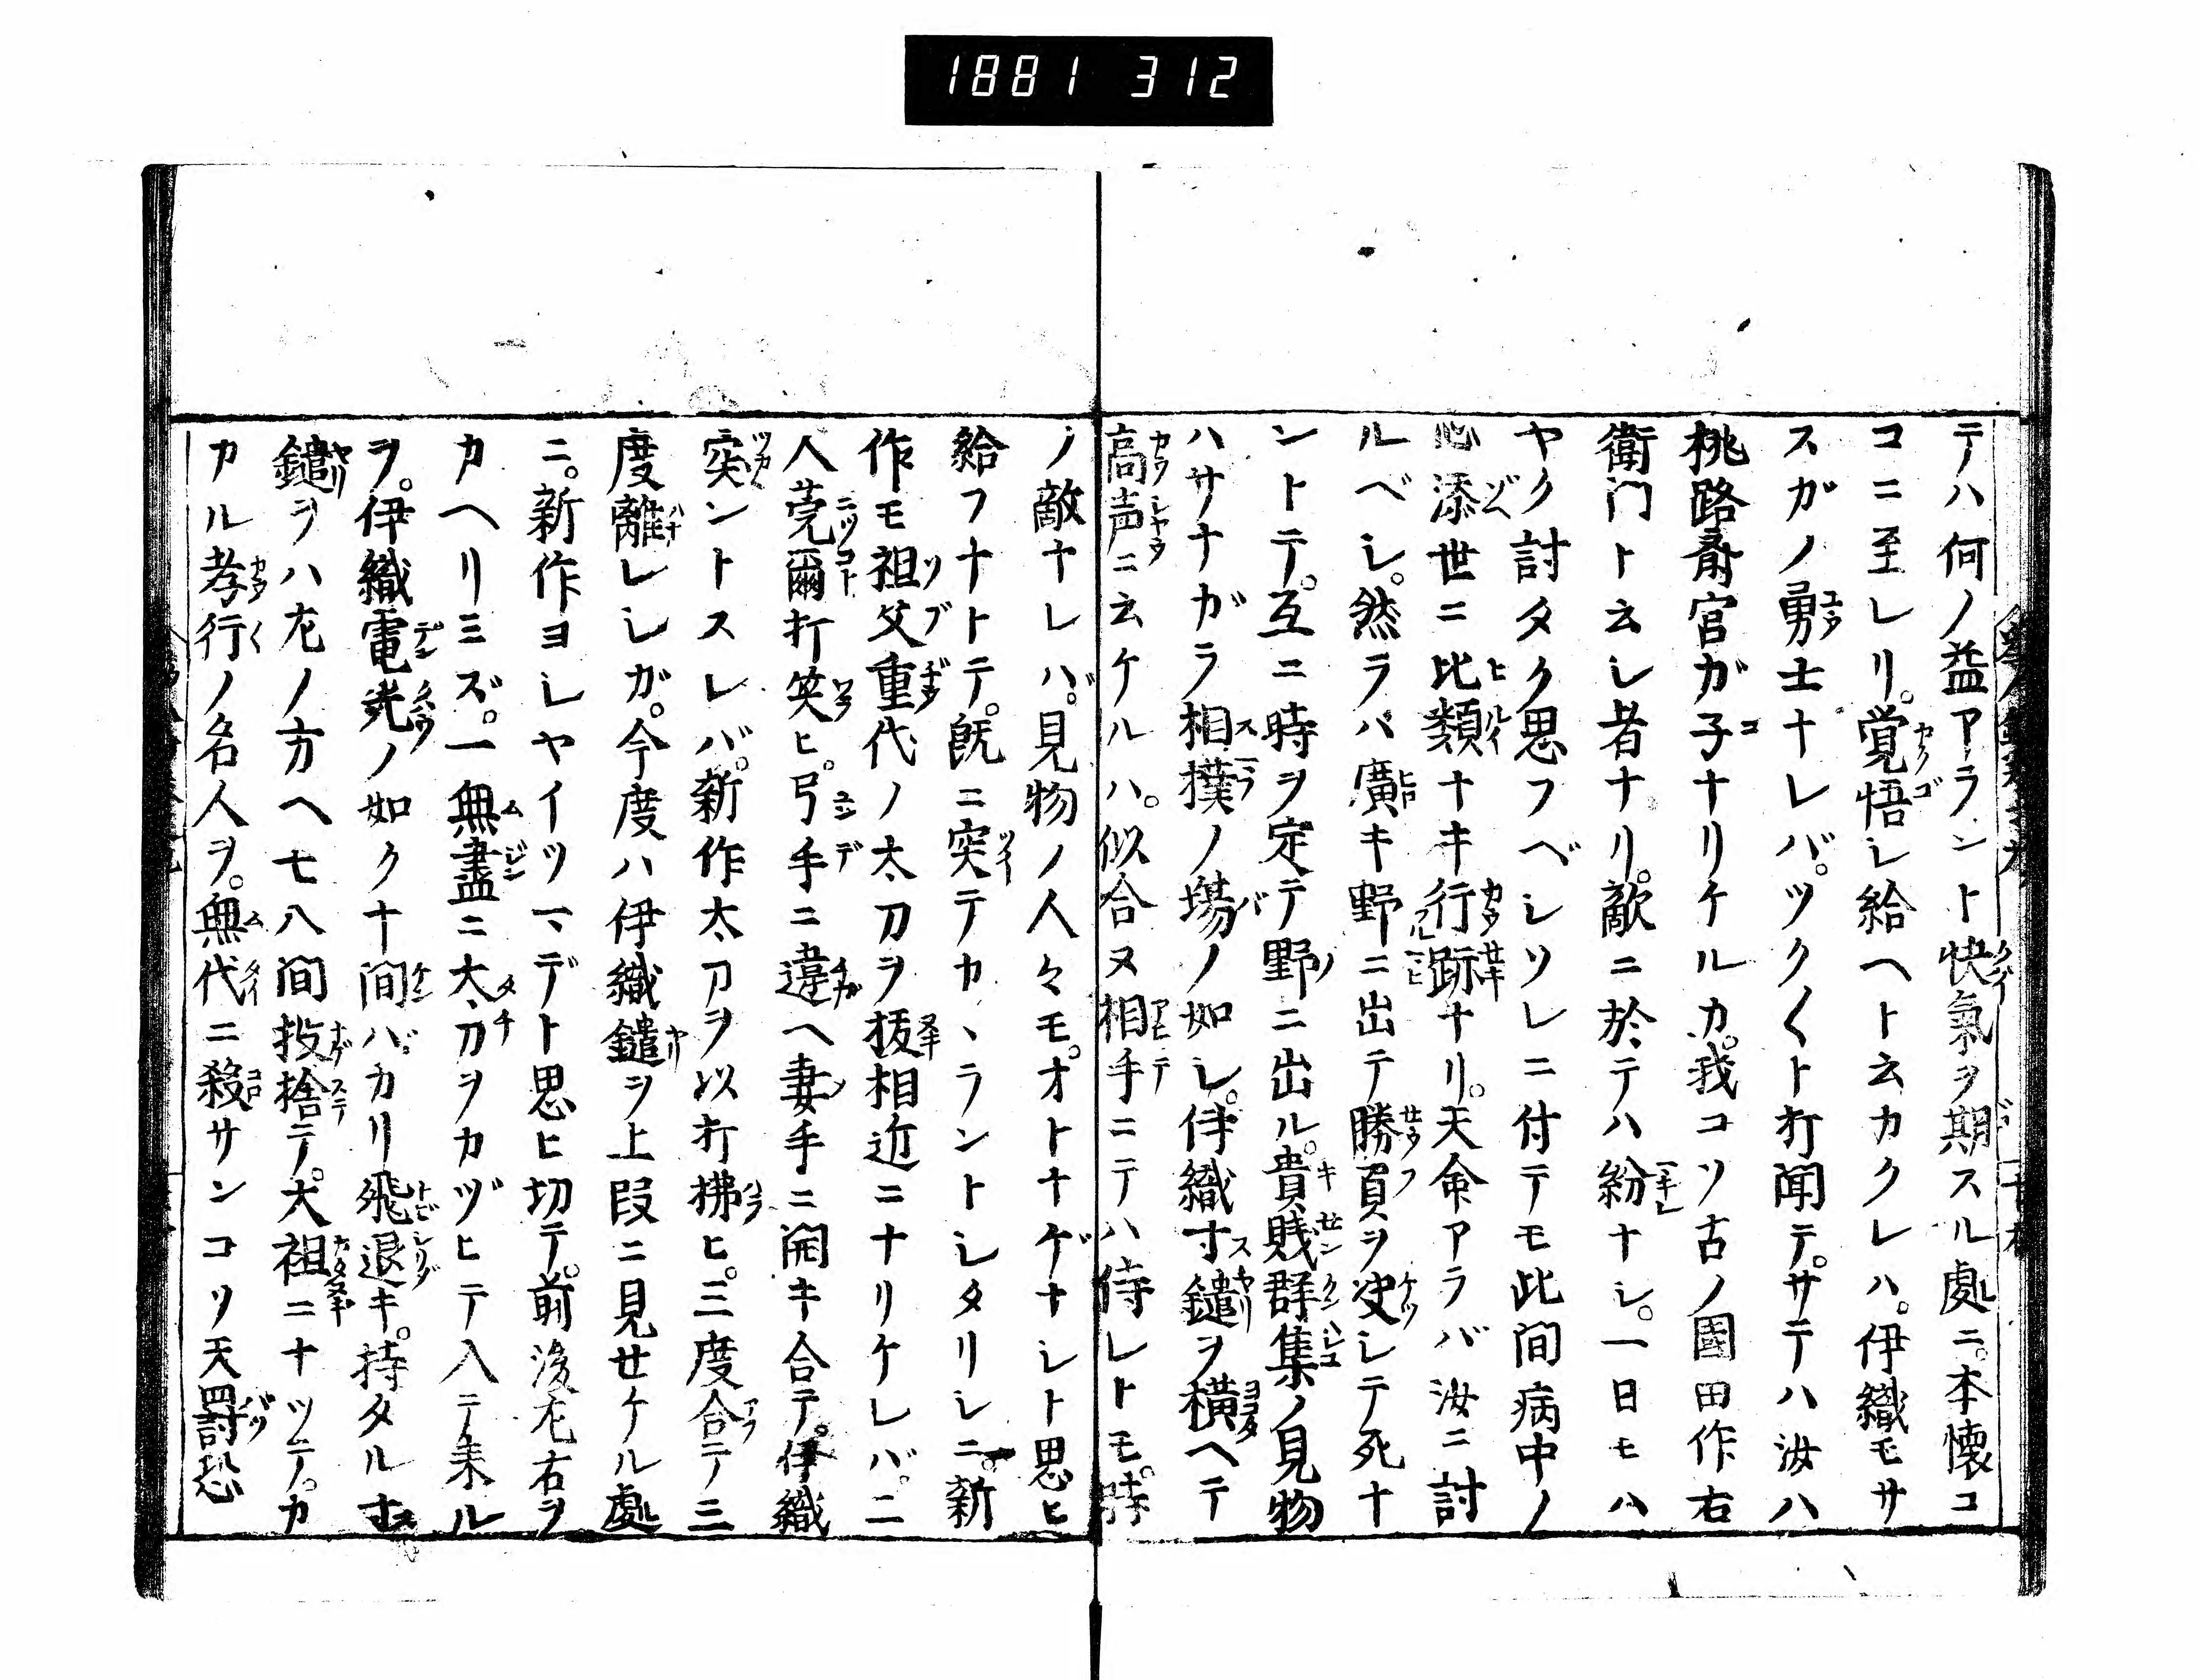 1881 312
テハ何ノ益アラント快氣ヲ期スル處ニ。本懐コ
コニ至レリ。覚悟シ給ヘト云カクレハ。伊織モサ
スガノ勇士ナレバ。ツク〱ト打聞テ。サテハ汝ハ
桃路斎宮ガ子ナリケルカ。我コソ古ノ國田作右
衛門ト云シ者ナリ。敵ニ於テハ紛ナシ。一日モハ
ヤク討タク思フベシソレニ付テモ此間病中ノ
心添世ニ比類ナキ行跡ナリ。天命アラバ汝ニ討
ルベシ。然ラバ廣キ野ニ出テ勝負ヲ决シテ死ナ
ントテ。互ニ時ヲ定テ野ニ出ル。貴賎群集ノ見物
ハサナガラ相撲ノ場ノ如シ。伊織寸鑓ヲ横ヘテ
高声ニ云ケルハ。似合ヌ相手ニテハ侍レトモ。時
ノ敵ナレハ゛。見物ノ人々モ。オトナゲナシト思ヒ
給フナトテ。既ニ突テカヽラントシタリシニ。新
作モ祖父重代ノ太刀ヲ抜相近ニナリケレバ。二
人莞爾打笑ヒ。弓手ニ違ヘ妻手ニ開キ合テ。伊織
突ントスレバ。新作太刀ヲ以打拂ヒ。三度合テ三
度離レシガ。今度ハ伊織鑓ヲ上段ニ見せケル處
ニ。新作ヨシヤイツマデト思ヒ切テ。前後左右ヲ
カヘリミズ。一無盡ニ太刀ヲカヅヒテ入テ来ル
ヲ。伊織電光ノ如ク十間バカリ飛退キ。持タル寸
鑓ヲハ左ノ方ヘ七八間投捨テ。大祖ニナツテ。カ
カル孝行ノ名人ヲ。無代ニ殺サンコソ天罸恐